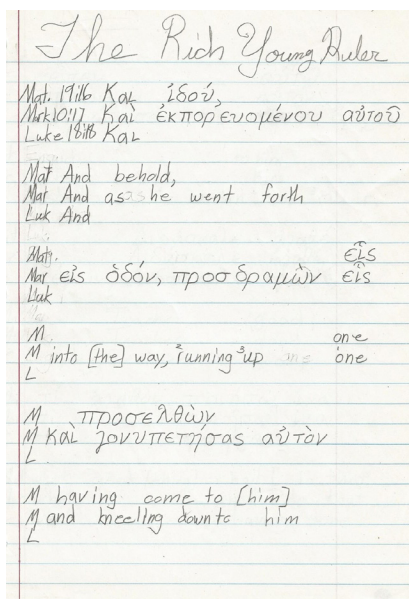 The Rich Young Ruler
Mat. 19:16 Και ἰδού,
Mrk 10:17 Καὶ ἐκπορευομένου αὐτοῦ
Luke 18:18 Και
Mat And behold,
Mar And as he went forth
Luk And
Mat. εἷς
Mar εἰς ὁδόν, προσδραμὼν εἷς
Luk
M. one
M into [the] way, ²running ³up one
L
M προσελθὼν
M καὶ γονυπετήσας αὐτὸν
L
M having come to [him]
M and kneeling down to him
L